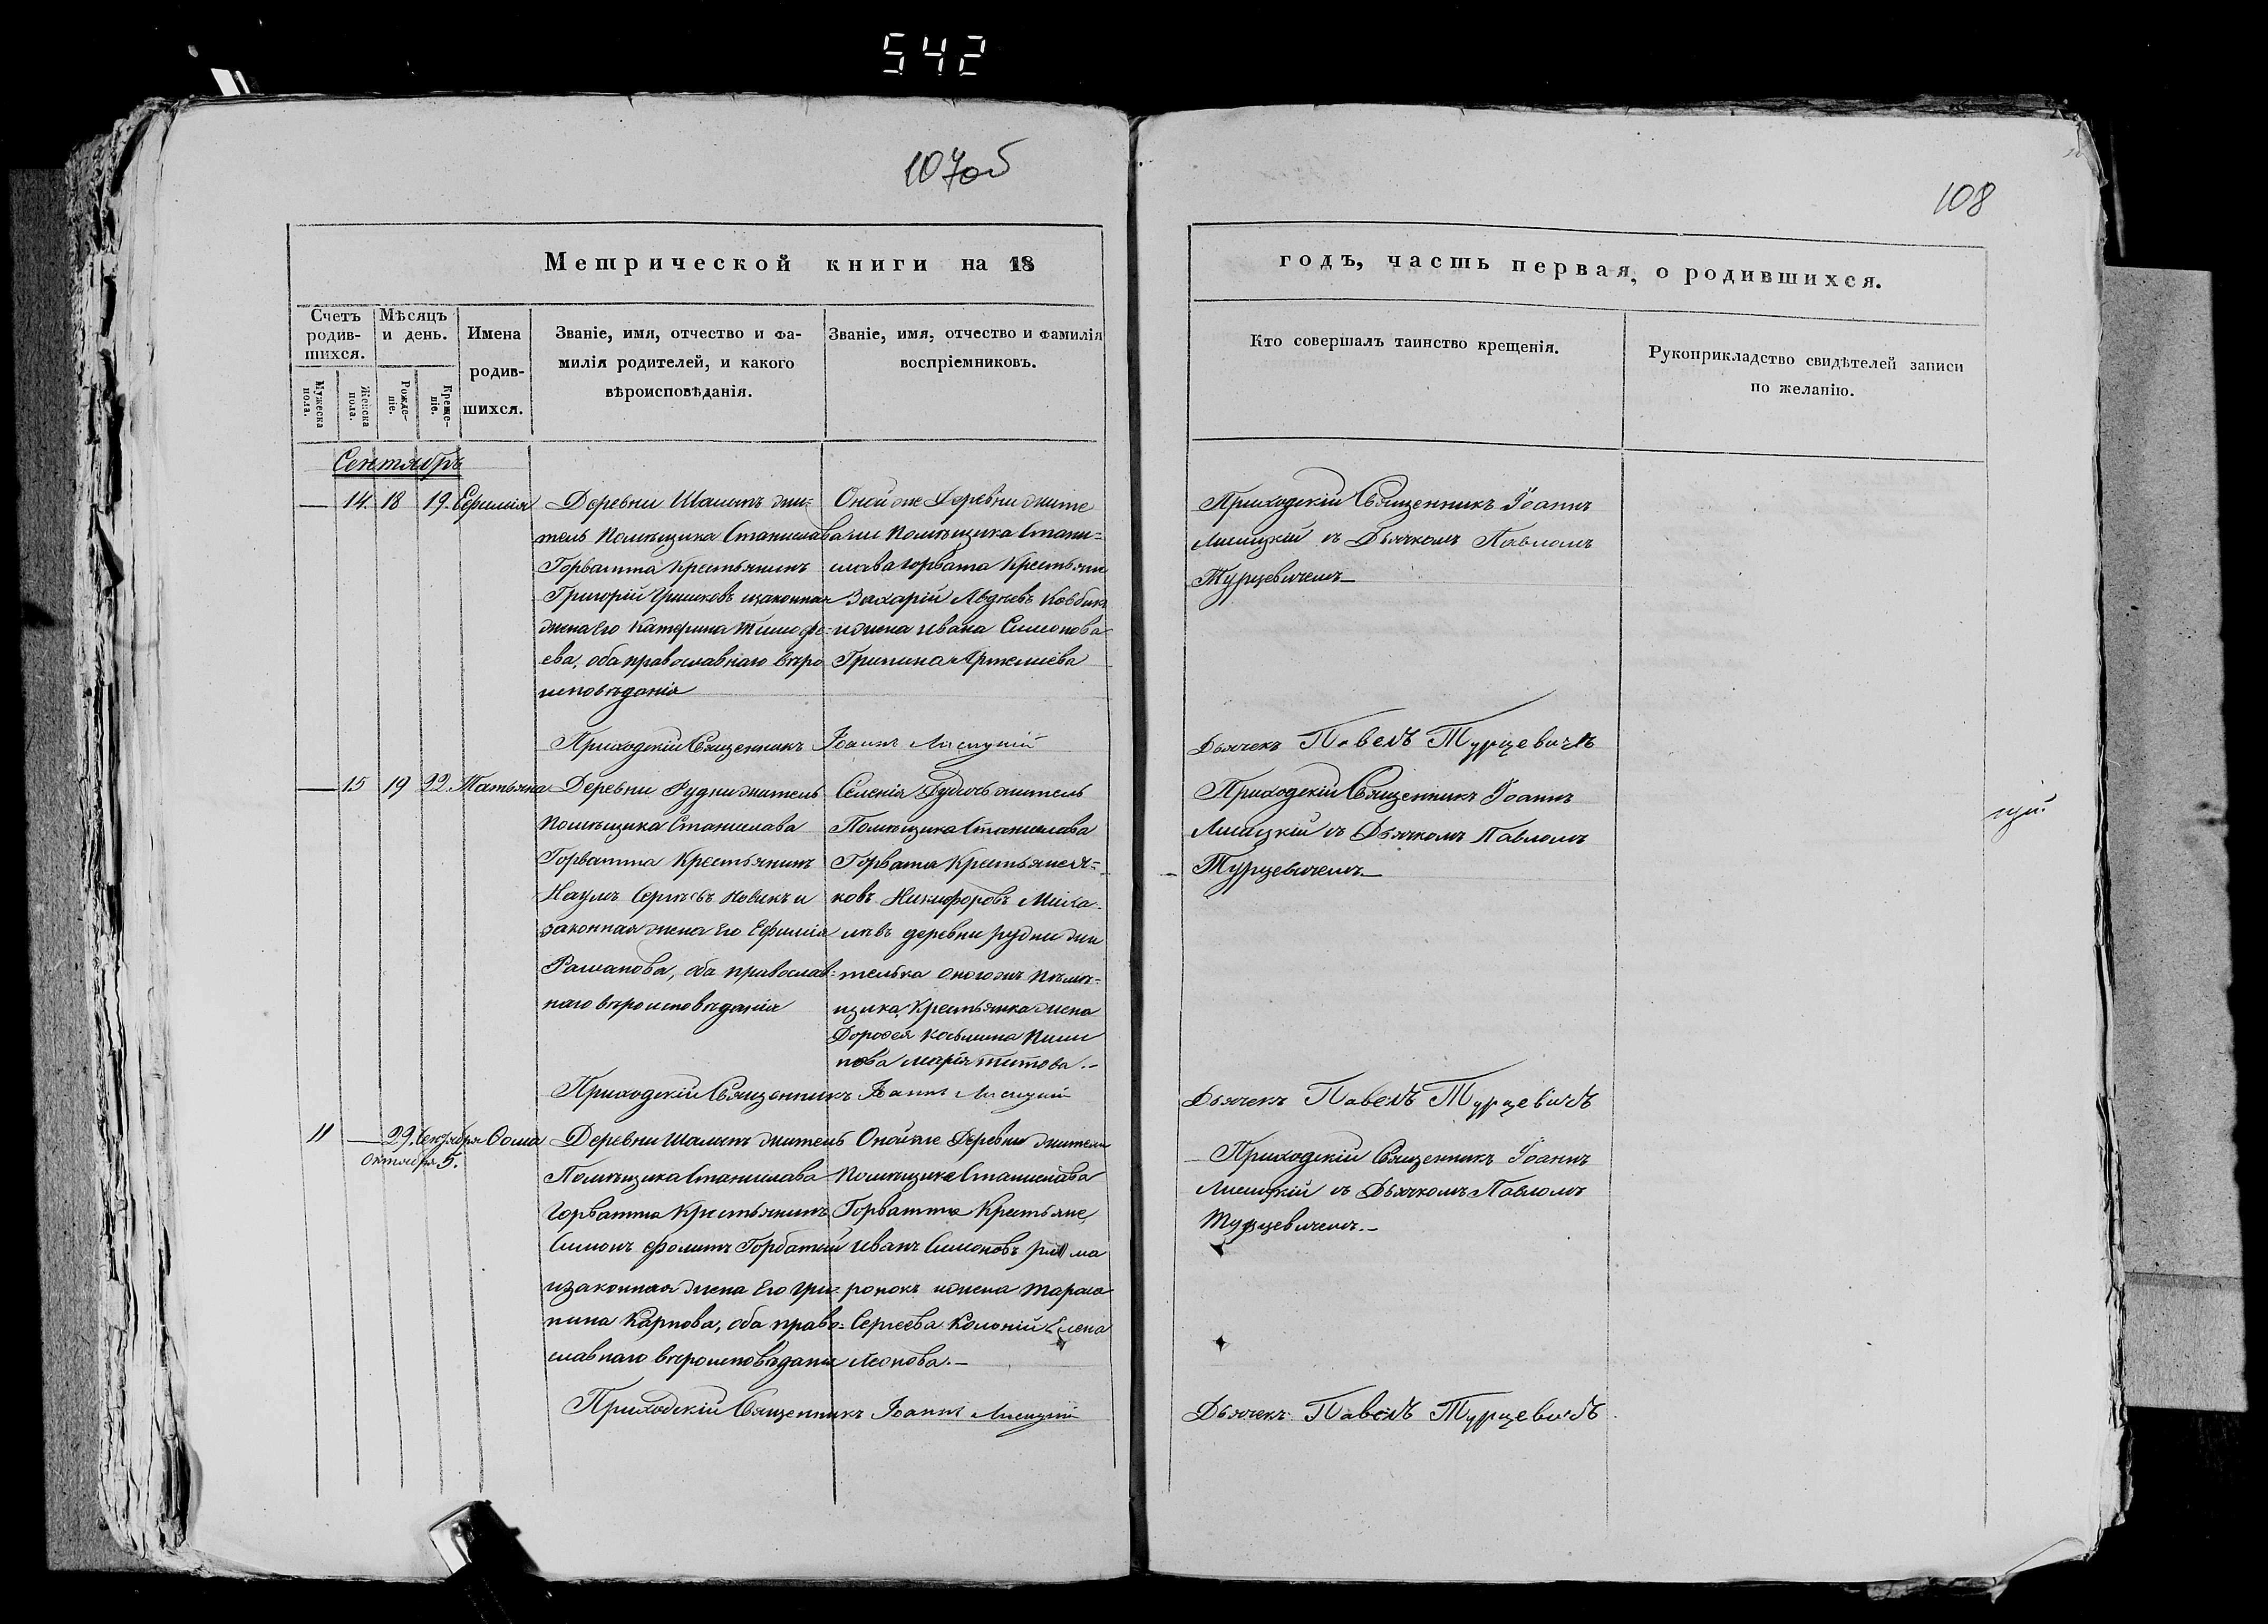 542
107об
108
Метрической книги на 18
годъ, часть первая, о родившихся.
Счетъ родив-шихся.
Мѣсяцъ и день.
Имена родив-шихся.
Званіе, имя, отчество и фа-
милія родителей, и какого
вѣроисповѣданія.
Званіе, имя, отчество и фамилія
воспріемниковъ.
Мужеска пола.
Женска пола.
Рожде-ніе.
Креще-ніе.
Кто совершалъ таинство крещенія.
Рукоприкладство свидѣтелей записи
по желанію.
Сентябрь
— 14. 18 19. Ефимія
Деревни жи-
тель Помѣщика Станислава
Горватта Крестьянинъ
Григорій изаконная
жена Его Катерина Тимофе-
ева, оба православнаго вѣро
исповѣданія
Оной же Деревни жите
ли Помѣщика Стани-
слава Горвата Крестьяне
Захарій Авдѣевъ
ижена Ивана Симонова
Грипина Артемиева
Приходскій Священникъ Іоаннъ
Лисицкій съ Дьячкомъ Павломъ
Турцевичемъ—
Приходскій Священникъ Іоаннъ Лисицкій
Дьячекъ Павелъ Турцевичъ
— 15 19 22. Татьяна
Деревни Рудни житель
Помѣщика Станислава
Горватта Крестьянинъ
Наумъ Сергѣевъ Новикъ и
законная жена Его Ефимія
Раманова, оба православ-
наго вѣроисповѣданія
Селенія житель
Помѣщика Станислава
Горвата Крестьяне Я-
ковъ Никифоровъ
деревни рудни жи
телька оногожъ Помѣ-
щика, Крестьянка жена
Дорофея Косьмина
Марія Титова.—
Приходскій Священникъ Іоаннъ
Лисицкій съ Дьячкомъ Павломъ
Турцевичемъ—
Приходскій Священникъ Іоаннъ Лисицкій
Дьячекъ Павелъ Турцевичъ
11 — 29. Сентября Ѳома
Октября 5.
Деревни житель
Помѣщика Станислава
Горватта Крестьянинъ
Симонъ Горбатый
изаконная жена Его Гри-
пина Карпова, оба право-
славнаго вѣроисповѣданія
Онойже Деревни жители
Помѣщика Станислава
Горватта Крестьяне,
Иванъ Симоновъ
ижена Тараса
Сергеева Елена
Леонова.—
Приходскій Священникъ Іоаннъ
Лисицкій съ Дьячкомъ Павломъ
Турцевичемъ.—
Приходскій Священникъ Іоаннъ Лисицкій
Дьячекъ Павелъ Турцевичъ